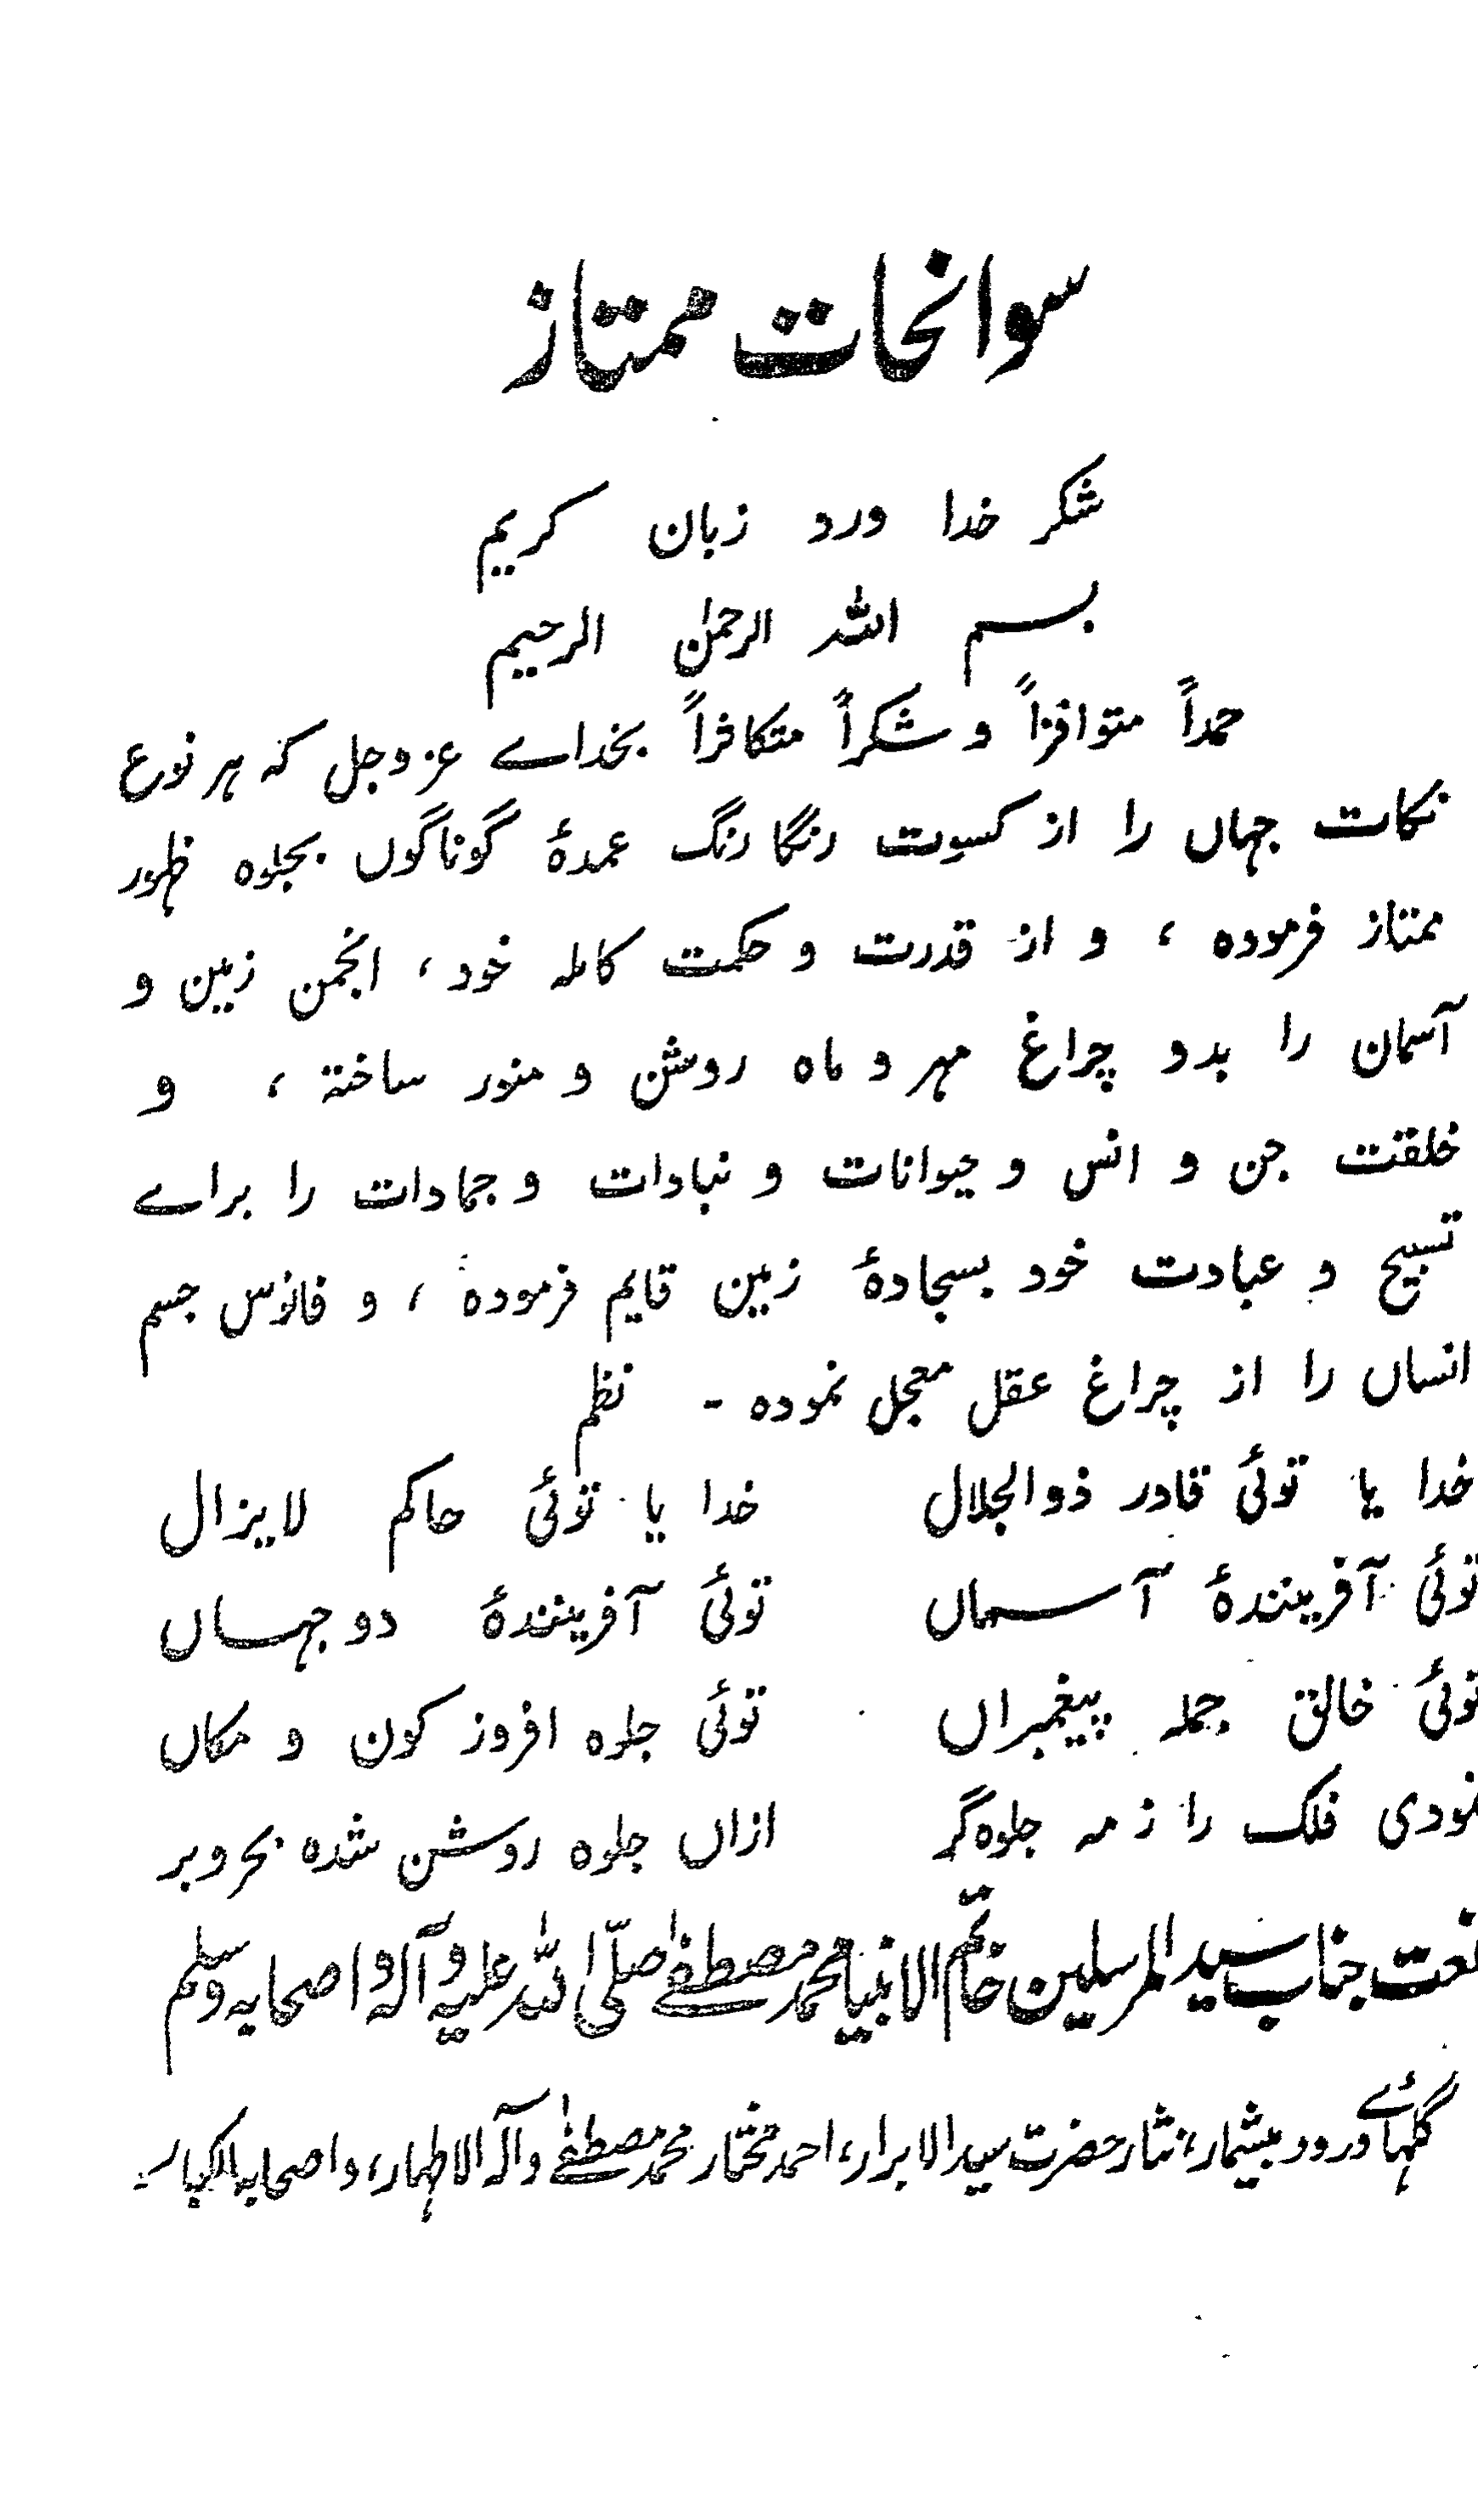 سوانحات ممتاز
شکر خدا ورد زبان کریم
بسم اللہ الرحمٰن الرحیم
حمداً متوافراً و شکراً متکاثراً بخداے عز و جل کہ ہر نوع
نکات جہاں را از کسوت رنگا رنگ عمدۂ گوناگوں بجلوہ ظہور
ممتاز فرمودہ ، و از قدرت و حکمت کاملہ خود ، انجمن زمین و
آسمان را بدو چراغ مہر و ماہ روشن و منور ساختہ ، و
خلقت جن و انس و حیوانات و نبادات و جمادات را براے
تسبیح و عبادت خود بسجادۂ زمین قایم فرمودہ ، و فانوس جسم
انساں را از چراغ عقل معجل نمودہ - نظم
خدا یا توئی قادر ذوالجلال خدا یا توئی حاکم لایزال
توئی آفرینندۂ آسماں توئی آفرینندۂ دو جہاں
توئی خالق جملہ پیغمبراں توئی جلوہ افروز کون و مکاں
نمودی فلک را ز مہ جلوہ گر ازاں جلوہ روشن شدہ بحر و بر
نعت جناب سید المرسلین خاتم الانبیا محمد مصطفےٰ صلّی اللہ علیہ و آلہ و اصحابہ وسلم
گلہائے درود بیشمار، نثار حضرت سید الابرار، احمد مختار محمد مصطفےٰ و آلہ الاطہار، و اصحابہ الکبار۔